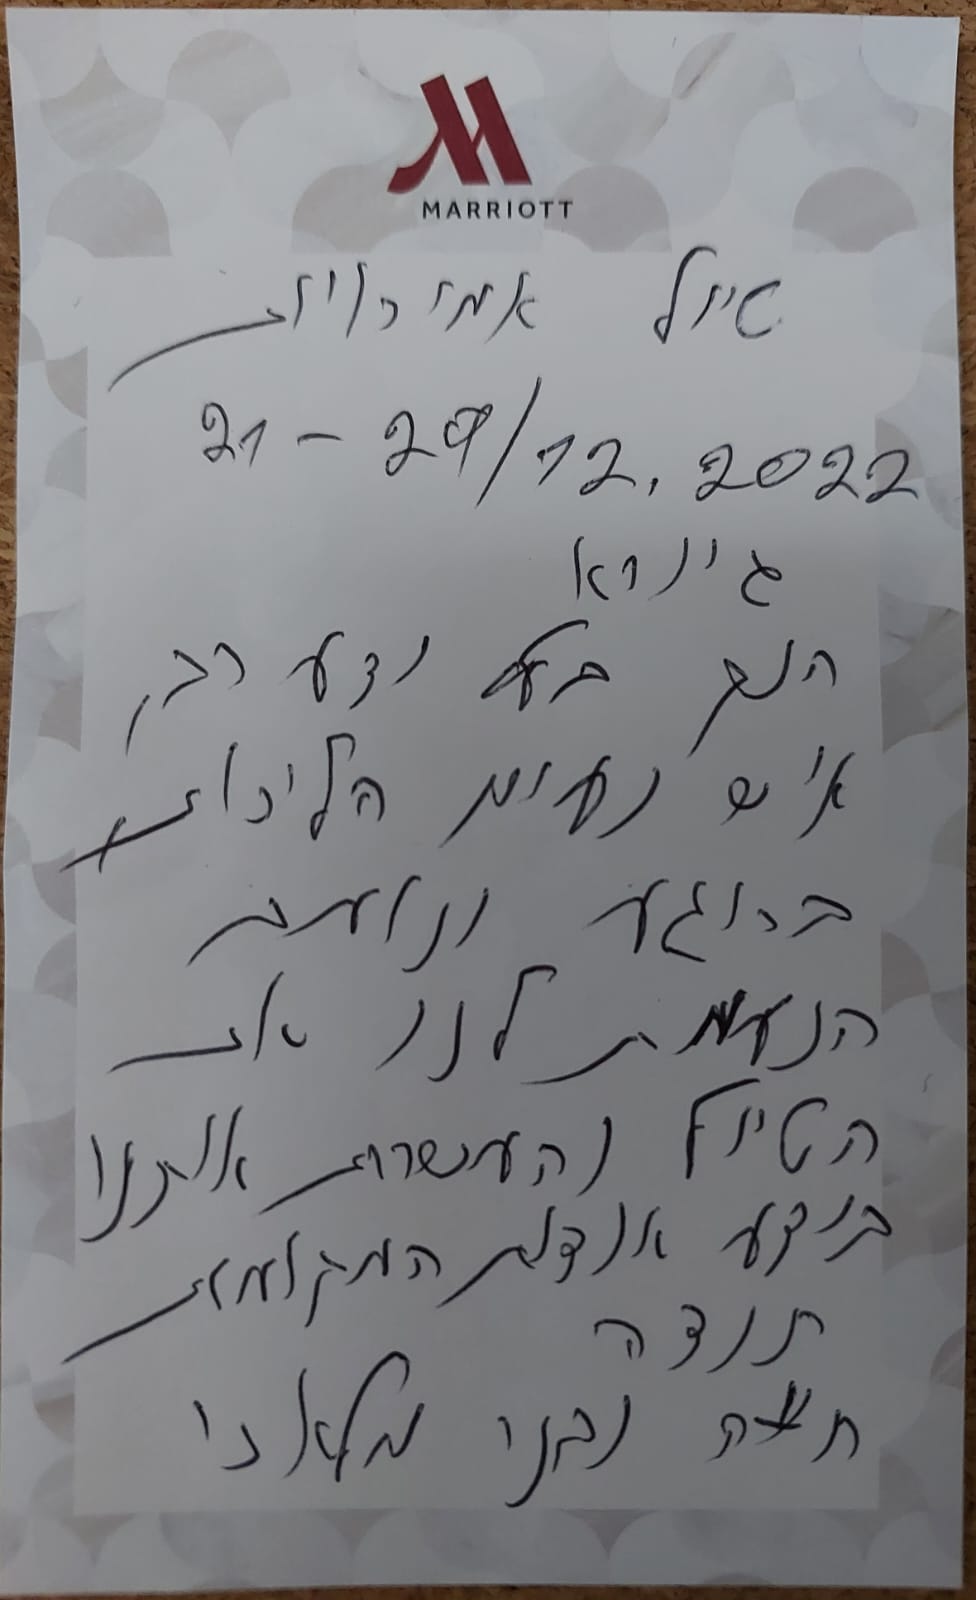 MARRIOTT
טיול אמירויות
21-29/12.2022
גיורא
הנך בעל ידע רב,
איש נעים הליכות
ברוגע ונועם
הנעמת לנו את
הטיול והעשרת אותנו
בידע אודות המקומות
תודה
חוה ובני מלאכי